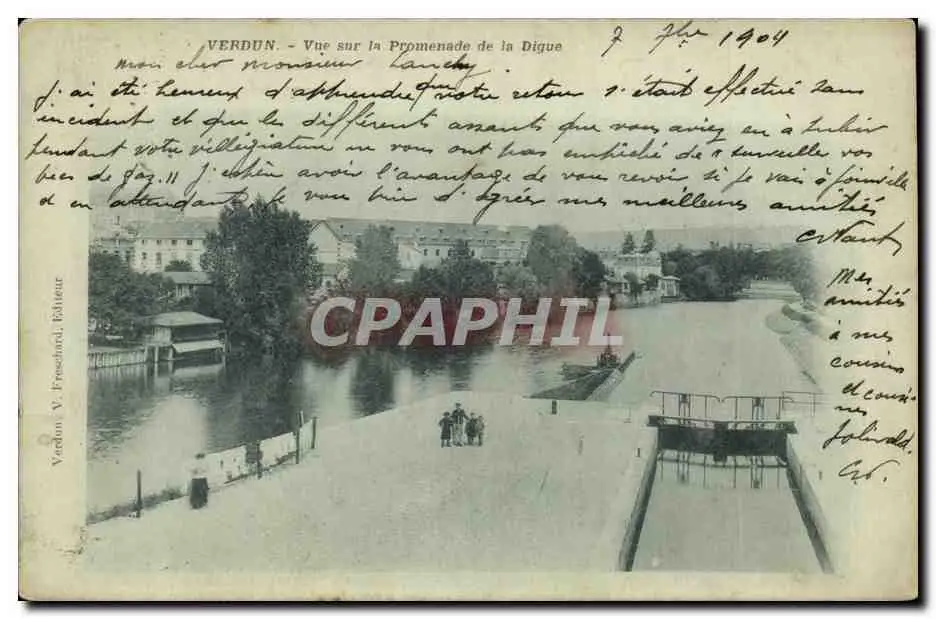 VERDUN. - Vue sur la Promenade de la Digue
7 7bre 1904
mon cher monsieur
J'ai été heureux d'apprendre que votre retour s'était effectué sans
incident et que les différents assauts que vous aviez eu à subir
pendant votre villégiature ne vous ont pas empêché de "surveiller vos
becs de gaz." J'espère avoir l'avantage de vous revoir si je vais à Joinville
et en attendant je vous prie d'agréer mes meilleures amitiés
Mes
amitiés
à mes
cousins
et cousines
CPAPHIL
Verdun, V. Freschard, Editeur